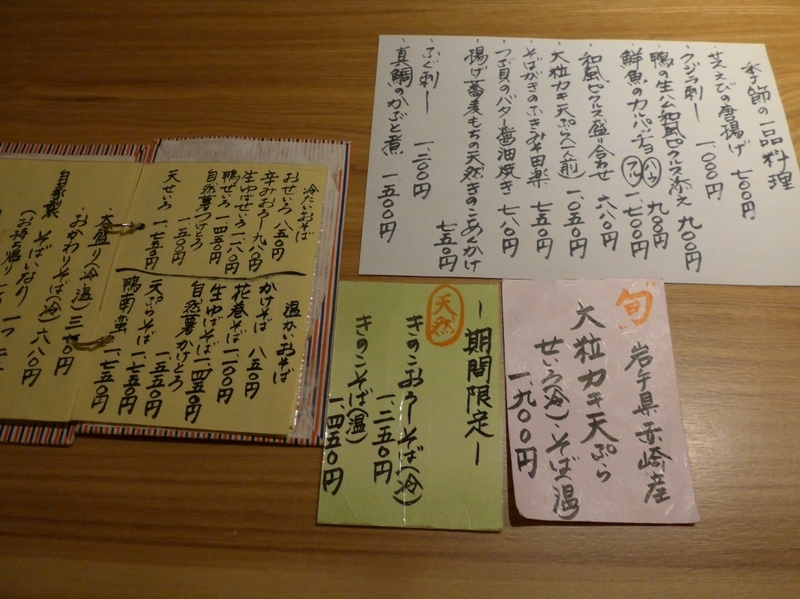 季節の一品料理
芝えびの唐揚げ 七〇〇円
クジラ刺し 一、〇〇〇円
鴨の生ハム和風ピクルス添え 九〇〇円
鮮魚のカルパッチョ ハーフ 九〇〇円 フル 一、七〇〇円
和風ピクルス盛り合わせ 六八〇円
大粒カキ天ぷら(一人前) 一、〇五〇円
そばがきのふきみそ田楽 七五〇円
つぶ貝のバター醤油焼き 七八〇円
揚げ蕎麦もちの天然きのこあんかけ 七五〇円
ふぐ刺し 一、二〇〇円
真鯛のかぶと煮 一、五〇〇円
冷たいおそば
おせいろ 八五〇円
辛みおろし 九八〇円
生ゆばせいろ 一、一八〇円
鴨せいろ 一、四五〇円
自然薯つけとろ 一、五〇〇円
天せいろ 一、七五〇円
温かいおそば
かけそば 八五〇円
花巻そば 一、一〇〇円
生ゆばそば 一、四五〇円
自然薯かけとろ 一、五五〇円
天ぷらそば 一、七五〇円
鴨南蛮 一、七五〇円
大盛り(冷・温) 三五〇円
おかわりそば(冷) 六八〇円
自家製 そばいなり
(お持ち帰り 一つ
天然
ー期間限定ー
きのこおろしそば(冷)
一、二五〇円
きのこそば(温)
一、四五〇円
旬
岩手県赤崎産
大粒カキ天ぷら
せいろ(冷)・そば(温)
一、九〇〇円